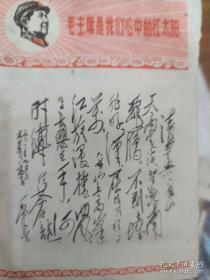 毛主席是我们心中的红太阳
清平乐 六盘山
天高云淡望断南
飞雁不到长城
非好汉屈指行程二
万六盘山上高峰
红旗漫卷西风
今日长缨在手何
时缚住苍龙